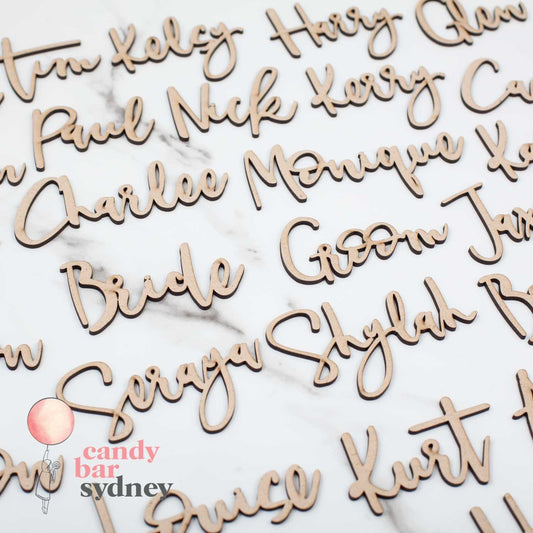 Tim Kelcy Harry Glen
Paul Nick Kerry
Charlee Monique
Bride Groom
Seraya Skylah
Louise Kurt
candy
bar
sydney